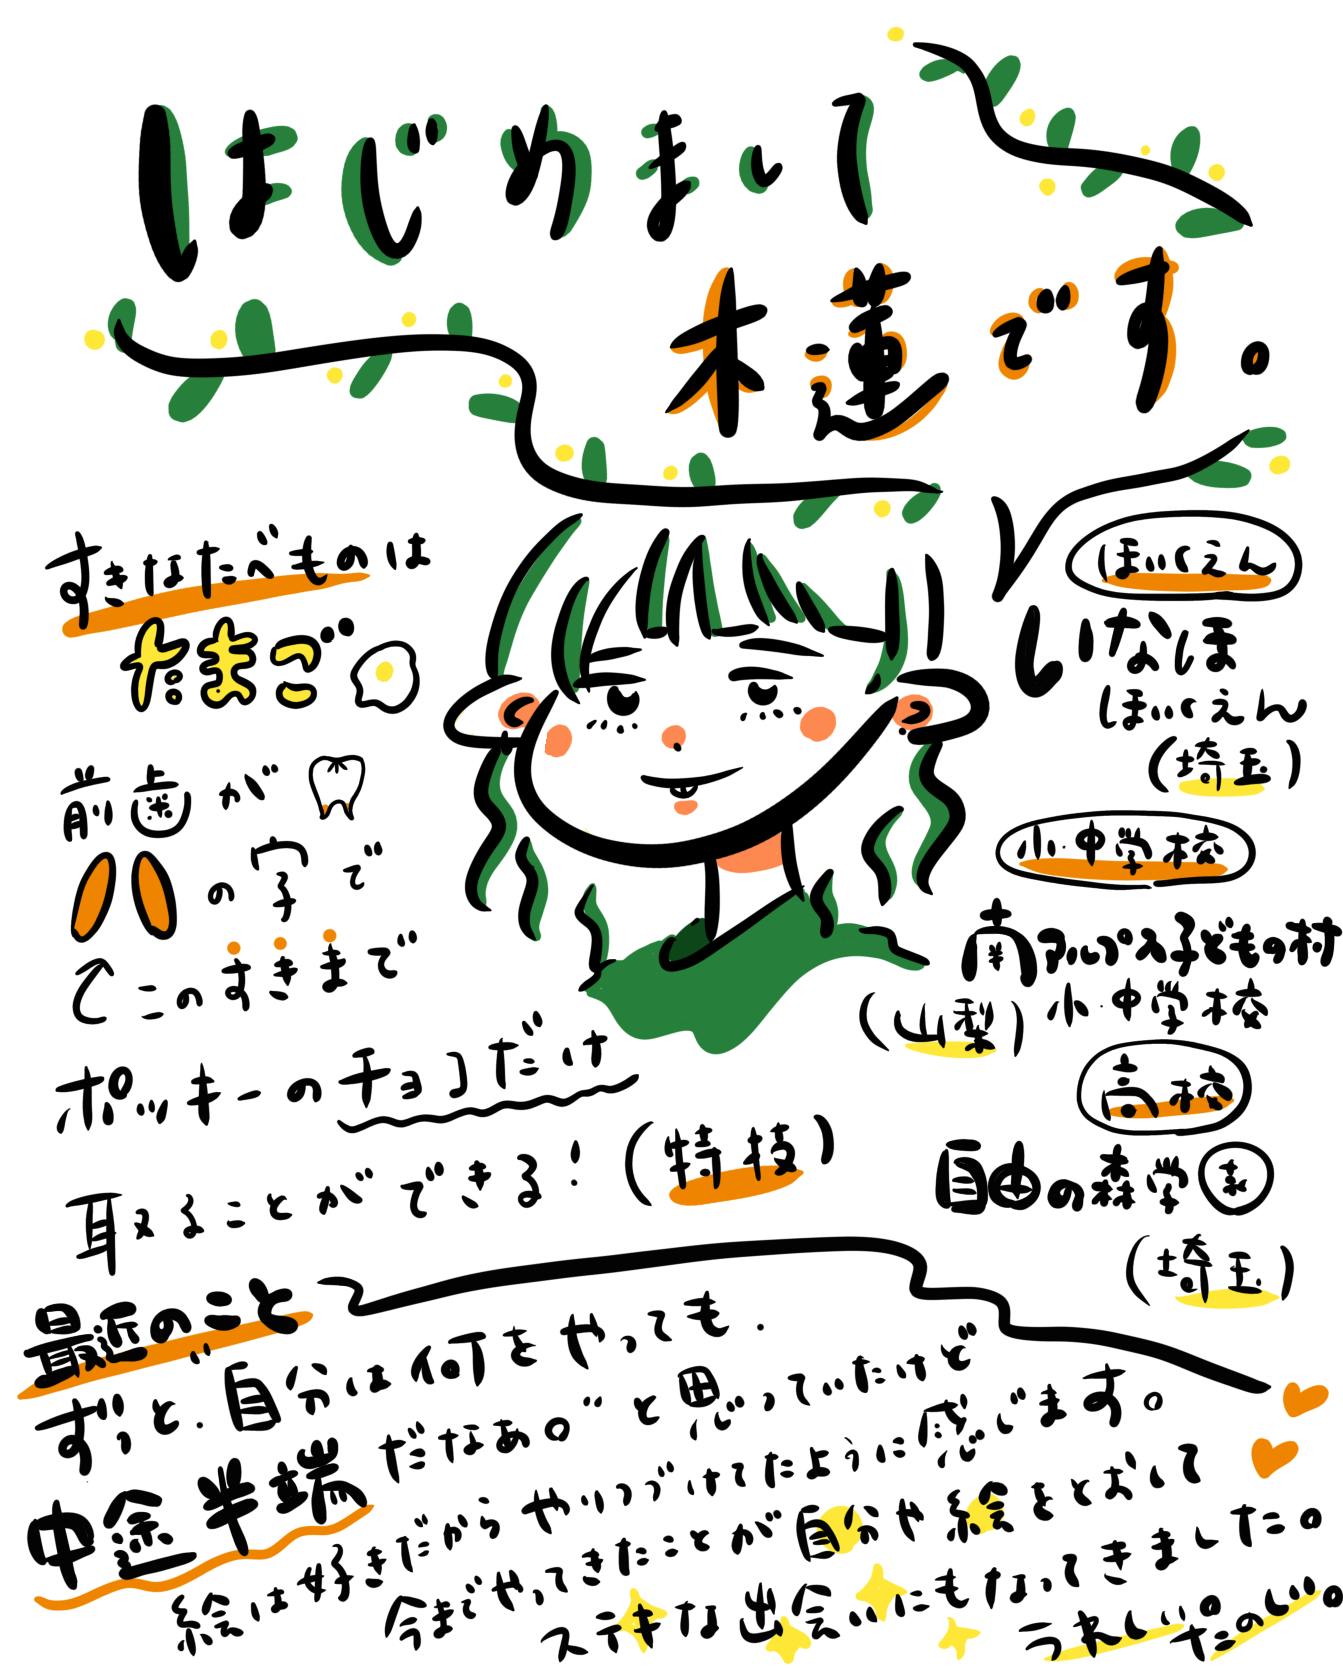 はじめまして
木蓮です。
すきなたべものは
たまご
前歯が
ハの字で
このすきまで
ポッキーのチョコだけ
取ることができる!(特技)
ほいくえん
いなほ
ほいくえん
(埼玉)
小・中学校
南アルプス子どもの村
小・中学校
(山梨)
高校
自由の森学園
(埼玉)
最近のこと
ずっと、自分は何をやっても、
中途半端だなあ。”と思っていたけど
絵は好きだからやりつづけてたように感じます。
今までやってきたことが自分や絵をとおして
ステキな出会いにもなってきました。
うれしい。たのしい。